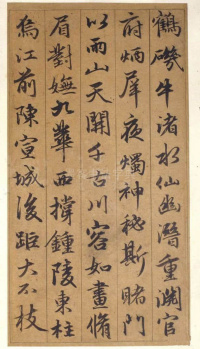 鶴磯牛渚水仙幽潛重淵官
府炳犀夜燭神秘斯睹門
以兩山天開千古川容如畫脩
眉對嫵九華西撐鍾陵東柱
烏江前陳宣城後距大不枝